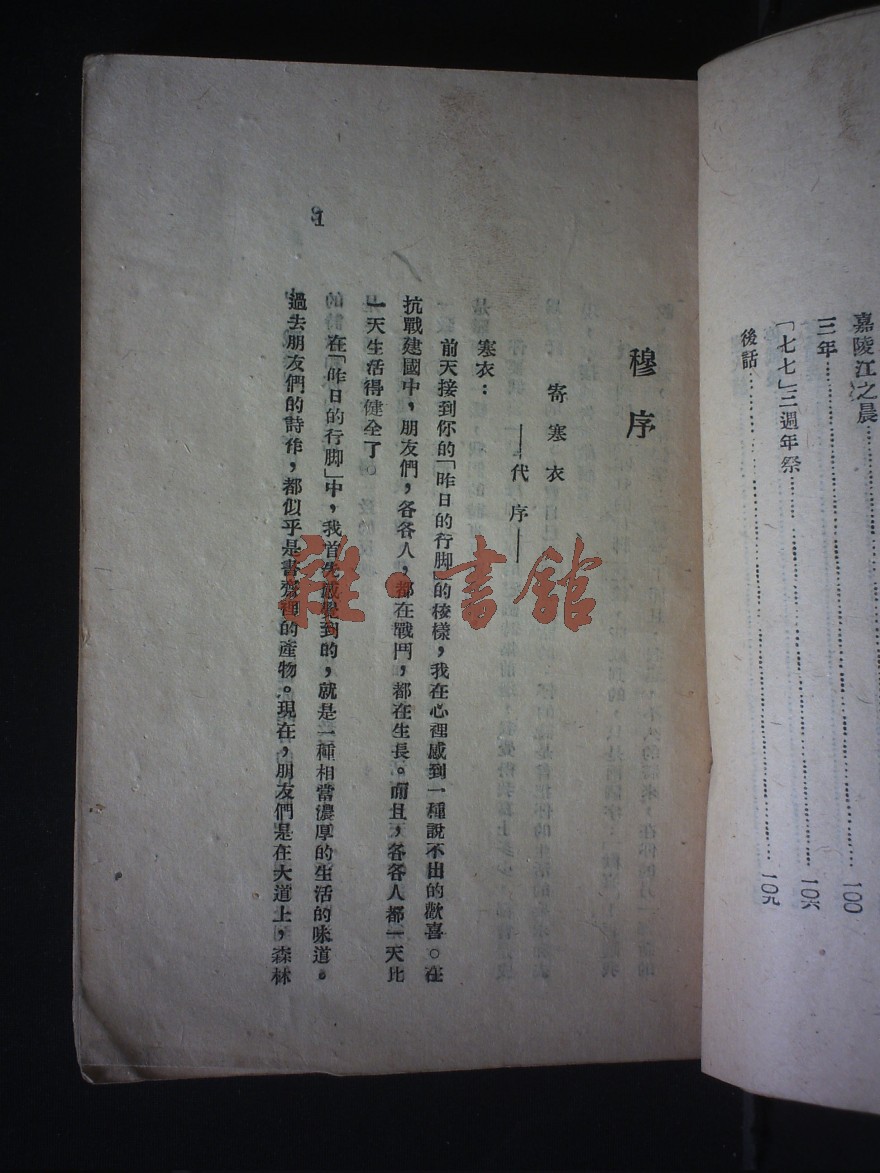 嘉陵江之晨……………………一〇〇
三年……………………一〇六
「七七」三週年祭……………………一〇九
後話……………………
穆序
寄塞衣
——代序——
塞衣：
前天接到你的「昨日的行脚」的校樣，我在心裡感到一種說不出的歡喜。在
抗戰建國中，朋友們，各各人，都在戰鬥，都在生長。而且，各各人都一天比
一天生活得健全了。
在「昨日的行脚」中，我首先感覺到的，就是一種相當濃厚的生活的味道。
過去朋友們的詩作，都似乎是書齋裡的產物。現在，朋友們是在大道上，森林
1
雜·書館